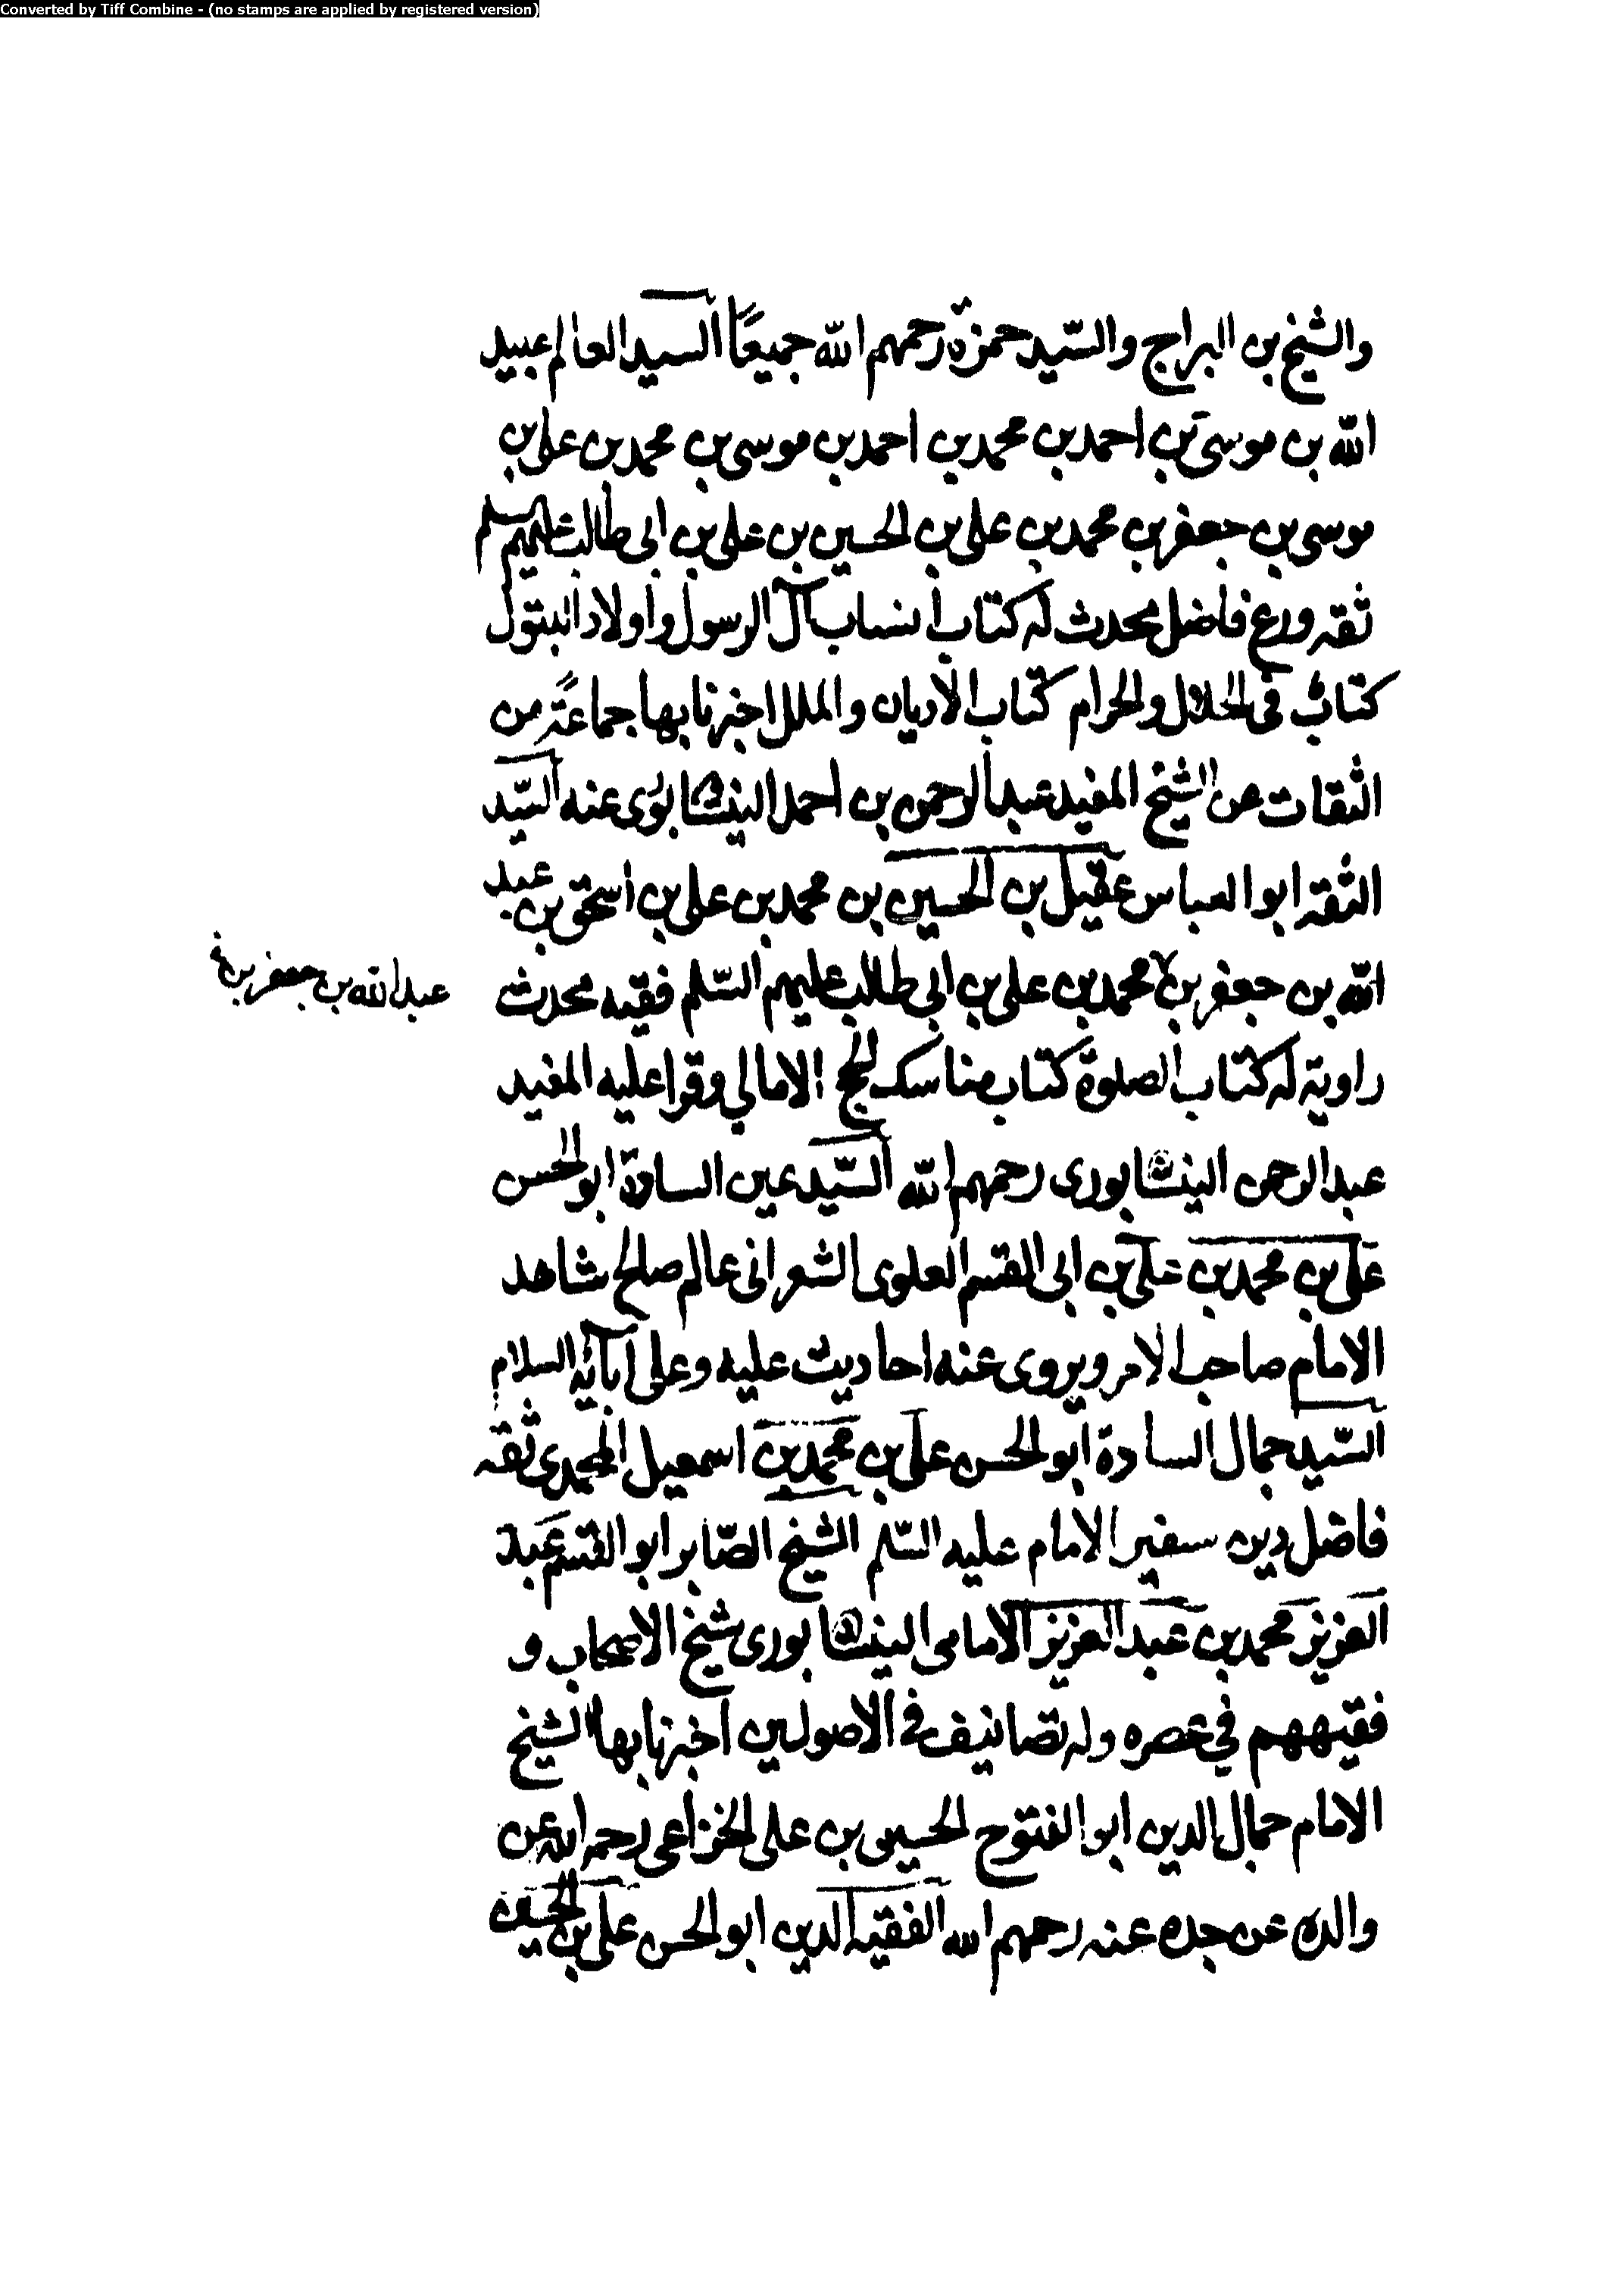 Converted by Tiff Combine - (no stamps are applied by registered version)
والشيخ بن البراج والسّيد حمزة رحمهم الله جميعًا السيد العالم عبيد
الله بن موسى بن احمد بن محمد بن احمد بن موسى بن محمد بن على بن
موسى بن جعفر بن محمد بن على بن الحسين بن على بن ابى طالب عليهم السلم
ثقه ورع فاضل محدث له كتاب انساب آل الرسول واولاد البتول
كتاب فى الحلال والحرام كتاب الاديان والملل اخبرنا بها جماعة من
الثقات عن الشيخ المفيد عبد الرحمن بن احمد النيشابورى عنه السّيد
الثقه ابو العباس عقيل بن الحسين بن محمد بن على بن اسحق بن عبد
الله بن جعفر بن محمد بن على بن ابى طالب عليهم السّلم فقيه محدث
عبد الله بن جعفر بن
راوية له كتاب الصلوة كتاب مناسك الحج الامالي وقرا عليه المفيد
عبد الرحمن النيشابورى رحمهم الله السّيد عين السادة ابو الحسن
على بن محمد بن على بن ابى القسم العلوى الشعرانى عالم صالح شاهد
الامام صاحب الامر ويروى عنه احاديث عليه وعلى آبائه السلام
السّيد جمال السادة ابو الحسن على بن محمد بن اسمعيل المحمدى ثقه
فاضل دين سفير الامام عليه السّلم الشيخ الصّابر ابو القسم عبد
العزيز محمد بن عبد العزيز الامامى النيشابورى شيخ الاصحاب و
فقيههم في عصره وله تصانيف فى الاصولين اخبرنا بها الشيخ
الامام جمال الدين ابو الفتوح الحسين بن على الخزاعى رحمه الله عن
والده عن جده عنه رحمهم الله الفقيه الدين ابو الحسن على بن الحسين